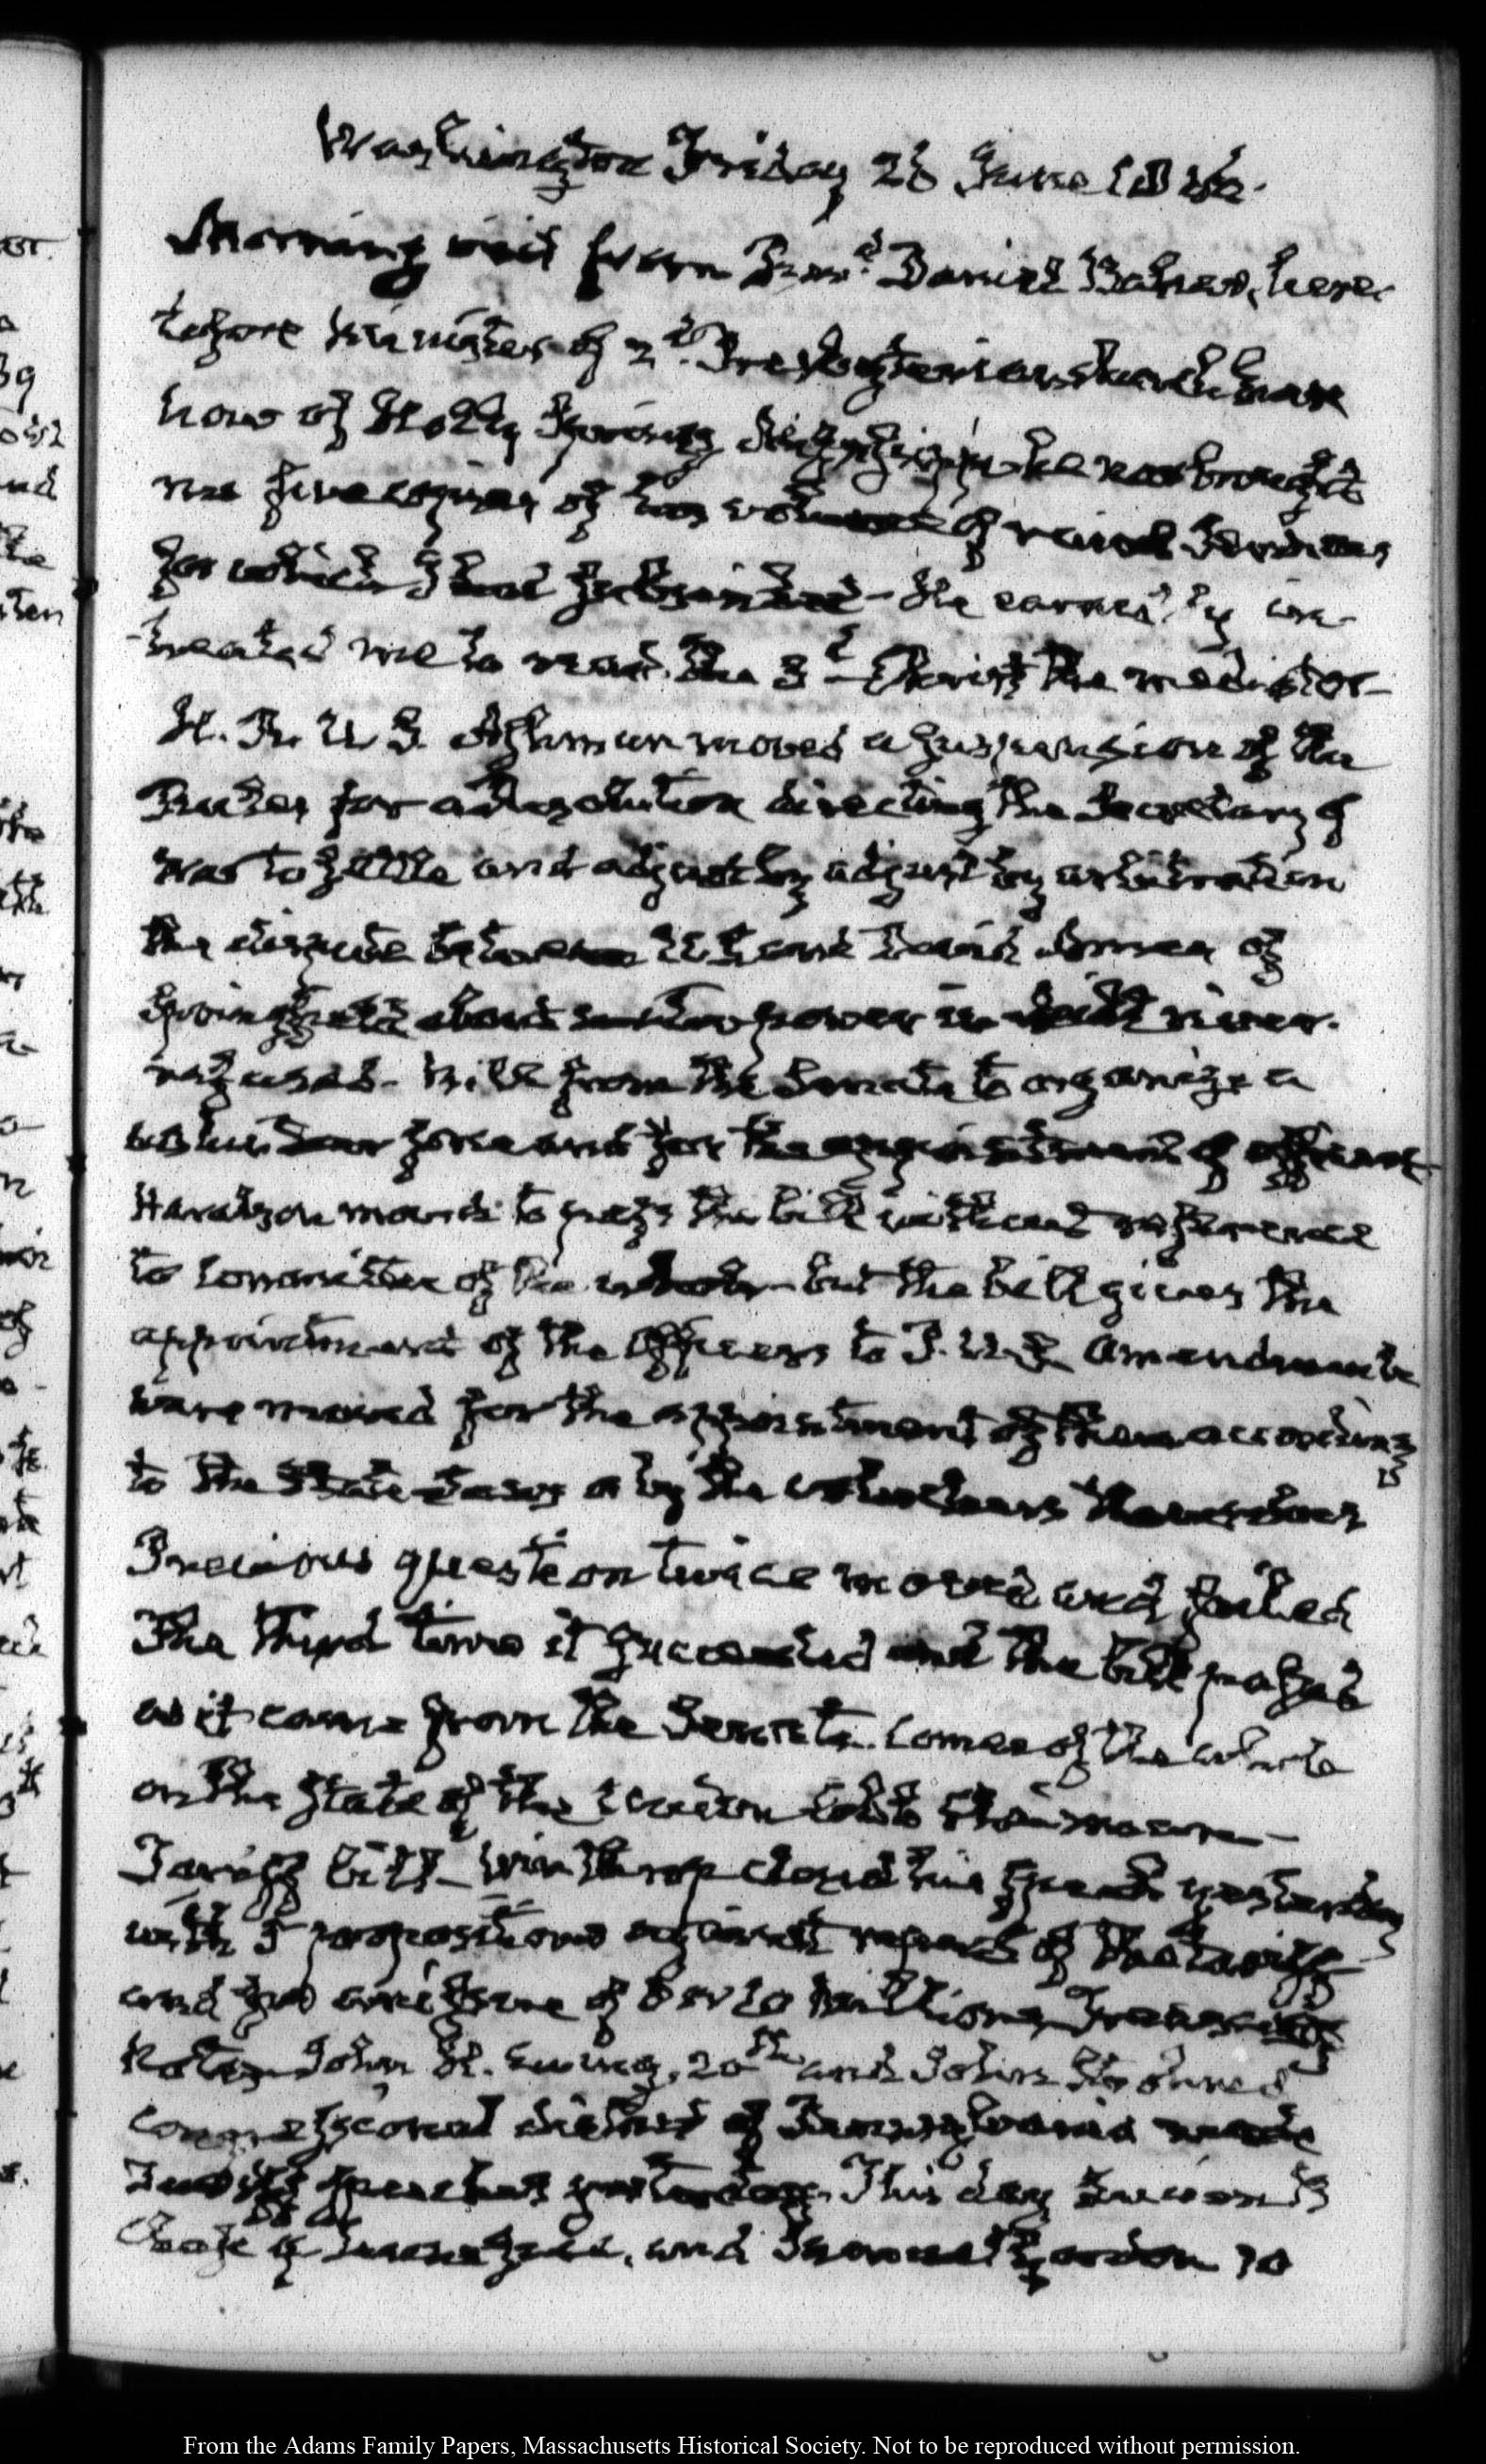 Washington Friday 26 June 1846.
Morning visit from Revd. Daniel here
tofore Minister of 2d. Presbyterian church
now of Holly Springs Mississippi he has brought
me five copies of his volume of
for which I had subscribed - He earnestly in-
treated me to read the 3d - Christ the mediator -
H. R. U S. Ashmun moved a suspension of the
Rules for a Resolution directing the Secretary of
War to settle and adjust by adjust by arbitration
the dispute between U S and David Ames of
Springfield about water power in Mill river.
refused - Bill from the Senate to organize a
volunteer force and for the of officers
Haralson moved to pass the bill without reference
to Committee of the whole - but the bill gives the
appointment of the Officers to P. U.S. Amendments
were moved for the appointment of them according
to the State Laws or by the volunteers themselves
Previous question twice moved and failed
The third time it succeeded and the bill passed
as it came from the Senate. Comee of the whole
on the state of the Union Cobb Chairman -
Tariff bill - Winthrop closed his speech yesterday
with 5 propositions against repeal of the Tariff
and substitute of 8 or 10 Millions
Notes John H. Ewing, 20th and John Strohm 8
Congressional district of Pennsylvania made
Tariff speeches yesterday. This day Edwin H
of Tennessee, and Samuel Gordon 10